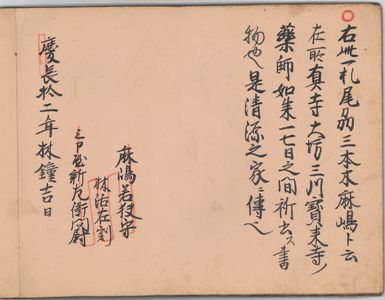 右此一札尾州三本木麻嶋ト云
在所真寺大坊三川寶来寺ノ
藥師如来一七日之間祈出ス書
物也是清源之家ニ傳ヘ
麻嶋若狭守
林治在判
三戸屋新左衛門尉
慶長於二年林鐘吉日